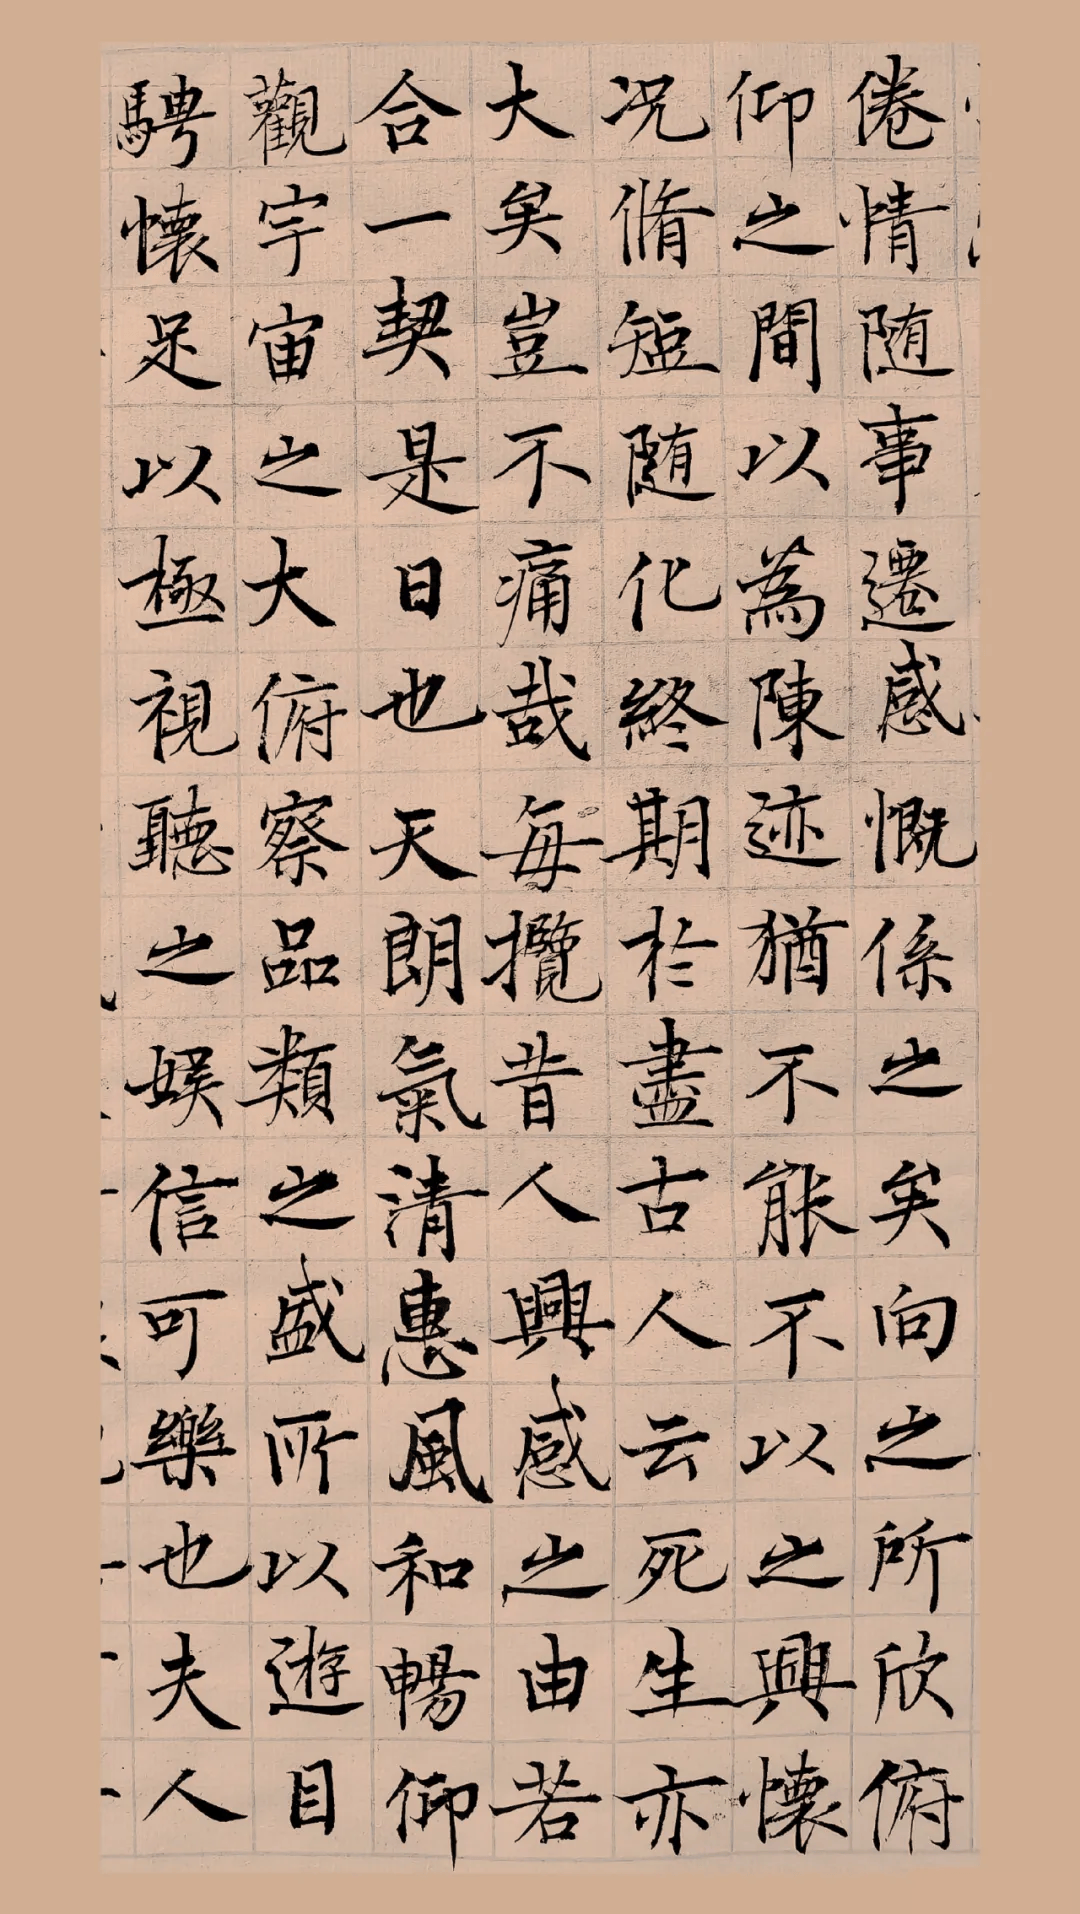 倦情随事遷感慨係之矣向之所欣俯
仰之間以為陳迹猶不能不以之興懐
况脩短随化終期於盡古人云死生亦
大矣豈不痛哉每攬昔人興感之由若
合一契是日也天朗氣清惠風和暢仰
觀宇宙之大俯察品類之盛所以遊目
騁懐足以極視聽之娯信可樂也夫人